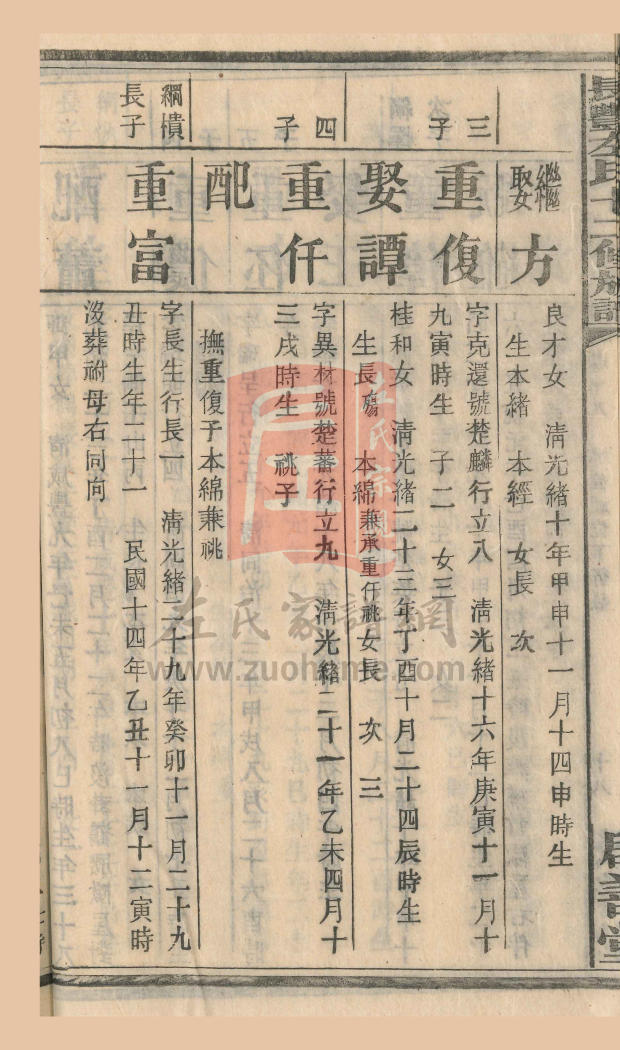 長豐左氏十二修族譜
繼娶 方
良才女 淸光緒十年甲申十一月十四申時生
生本緒 本經 女長 次
三子
重復
字克還號楚麟行立八 淸光緒十六年庚寅十一月十
九寅時生 子二 女三
娶譚
桂和女 淸光緒二十三年丁酉十月二十四辰時生
生長殤 本綿兼承重仟祧女長 次 三
四子
重仟
字異材號楚蕃行立九 淸光緒二十一年乙未四月十
三戌時生 祧子
配
撫重復子本綿兼祧
綱横長子
重富
字長生行長一 淸光緒二十九年癸卯十一月二十九
丑時生年二十一 民國十四年乙丑十一月十二寅時
沒葬祔母右同向
左氏家譜網
www.zuohome.com